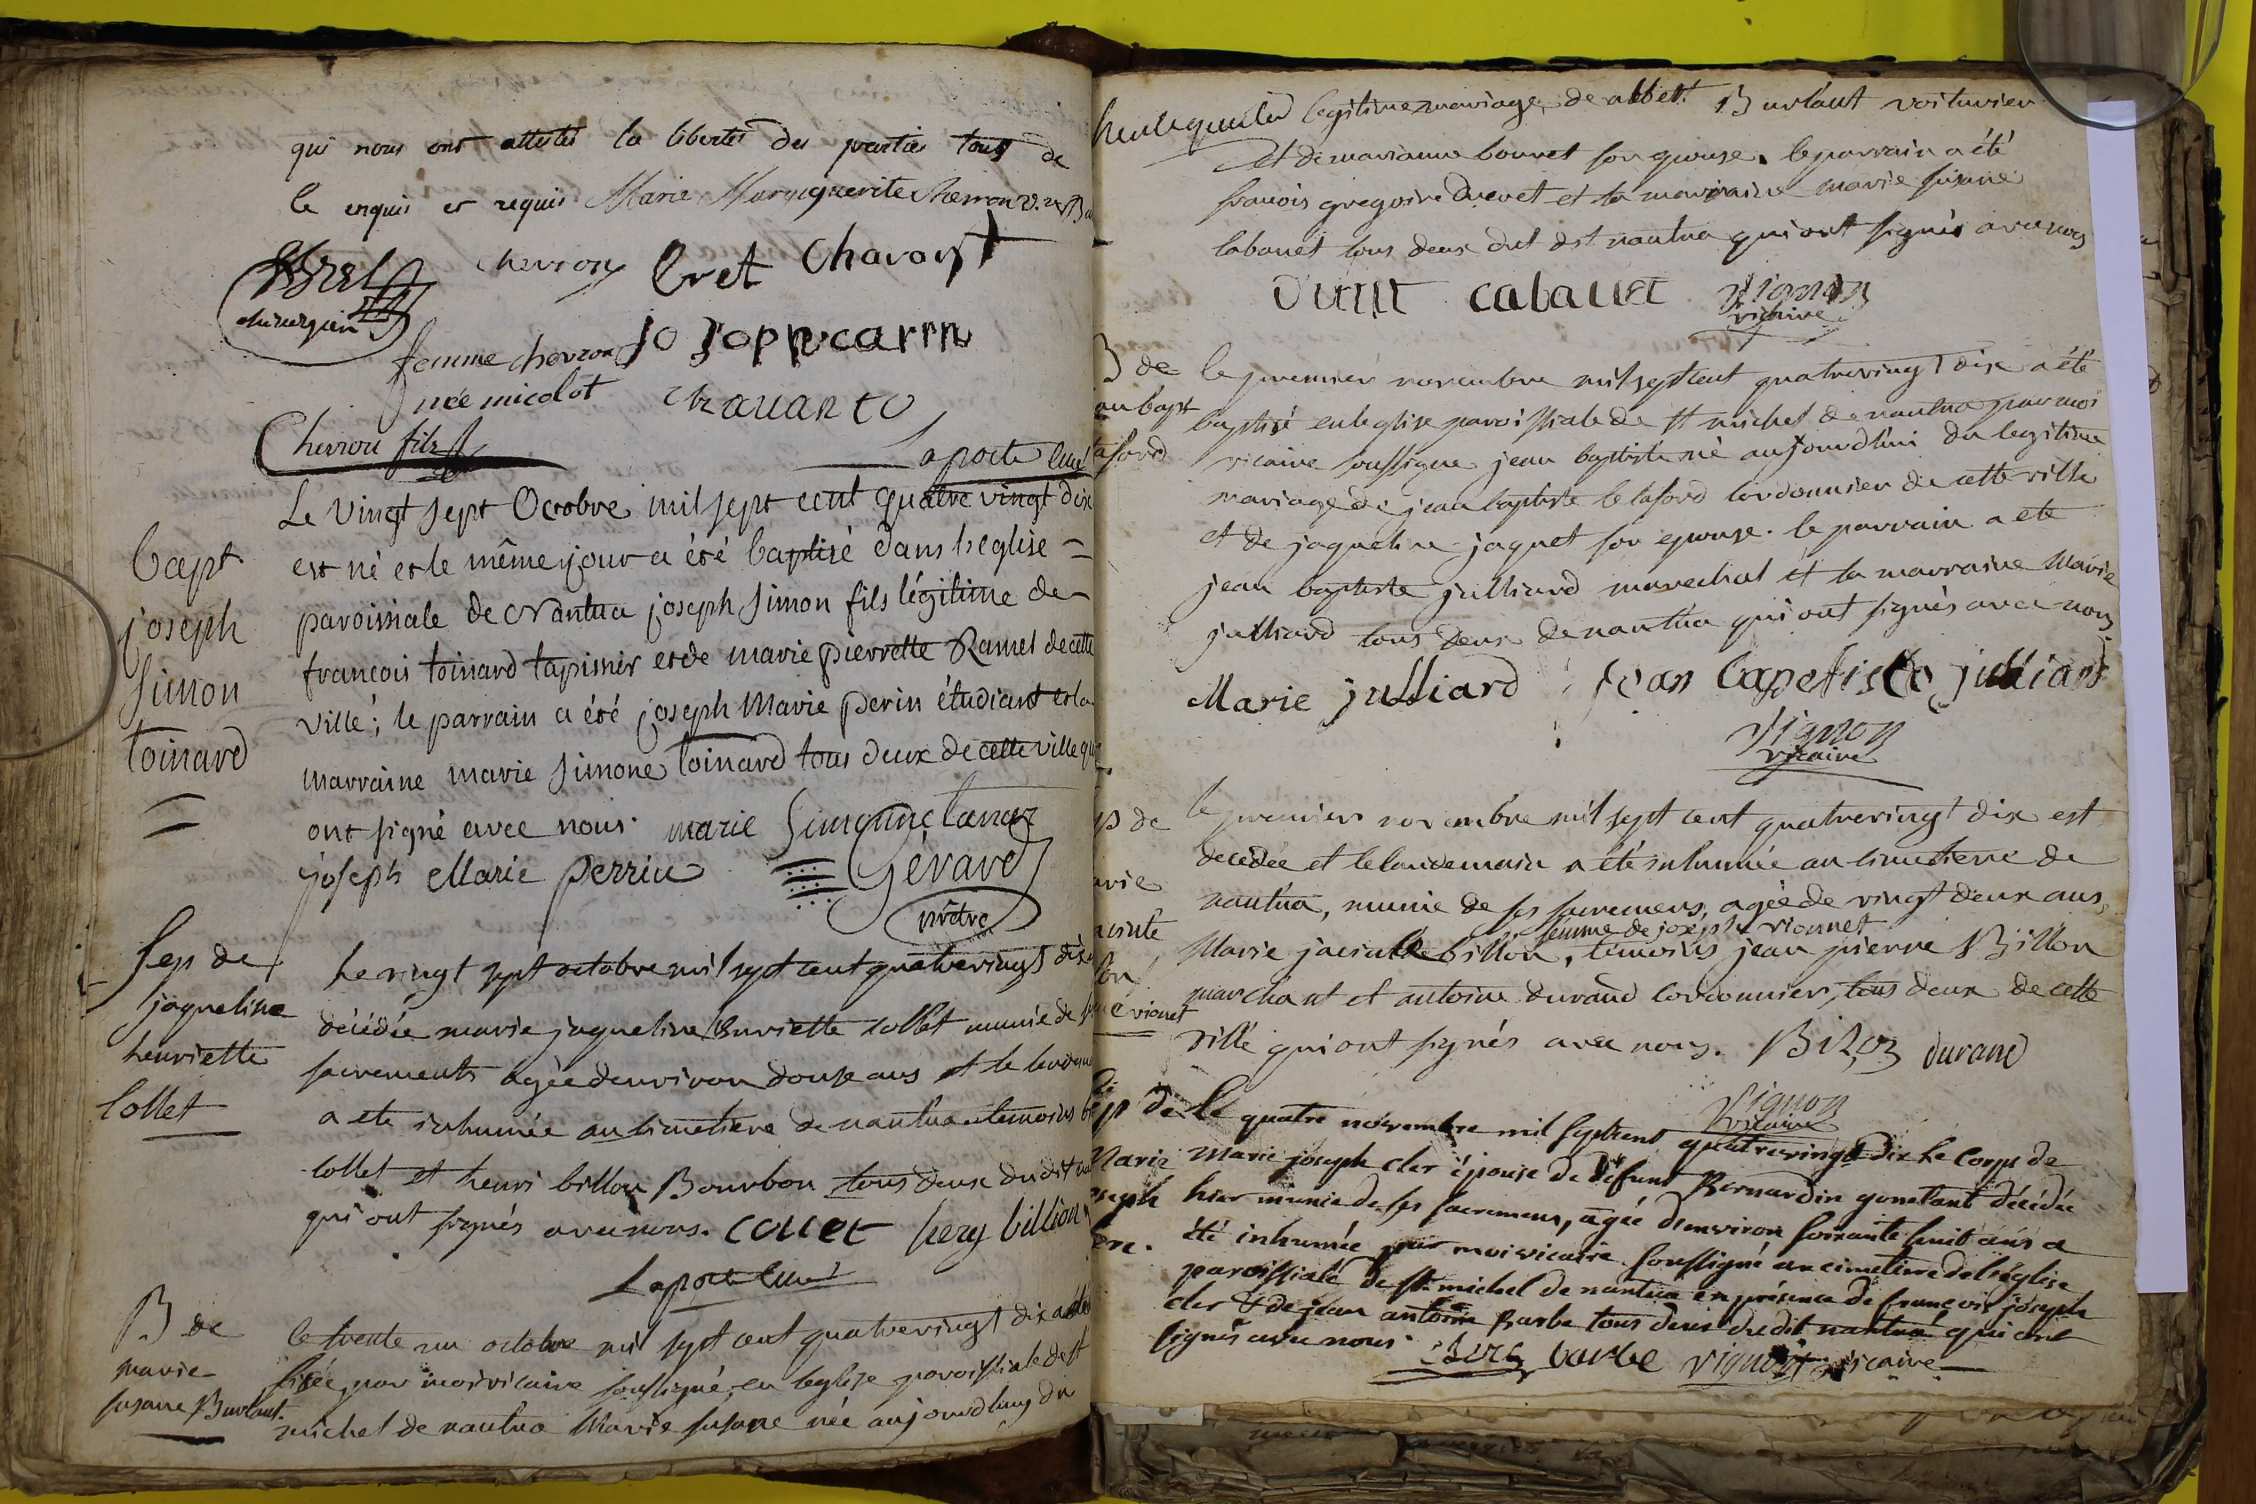 qui nous ont attestés la libertés des parties tous de
le enquis et requis Marie Marguerite Cherron
cherron Cret Chavant
chirurgien
femme chevron
née micolot
chavant
Chevron fils
Laporte curé
Bapt
joseph
simon
toinard
Le Vingt sept Octobre mil sept cent quatre vingt dix
est né et le même jour a été baptisé dans l'eglise =
paroissiale de Nantua joseph Simon fils légitime de
francois toinard tapissier et de marie pierrette Ramel de cette
ville; le parrain a été joseph Marie perin étudiant et la
marraine marie Simone toinard tous deux de cette ville qui
ont signé avec nous. marie Simonne
joseph Marie perrin Gérard
prêtre
Sep de
jaqueline
henriette
Collet
Le vingt sept octobre mil sept cent quatrevingt dix
décédée marie jaqueline henriette collet munie de
sacrements agée denviron douse ans et le
a ete inhumée au cimetiere de nantua temoins
collet et henri billon Bourbon tous deux dudit
qui ont signés avec nous. Collet hery billion
Laporte curé
B de
marie
susane Burlaut
le trente un octobre mil sept cent quatrevingt dix a été
par moi vicaire soussigné, en leglise paroissiale de st
michel de nantua Marie susane née aujourdhuy du
legitime mariage de albert Burlaut voiturier
et de marianne bonnet son epouse. le parrain a été
francois gregoire et la marraine marie susane
cabauet tous deux dud nantua qui ont signés avec nous
cabauet Vignon
vicaire
B de
jean bapt
lafond
le premier novembre mil sept cent quatrevingt dix a été
baptisé en leglise paroissiale de st michel de nantua par moi
vicaire soussigne jean baptiste né aujourdhui du legitime
mariage de jean baptiste lafond cordonnier de cette ville
et de jaqueline jaquet son epouse. le parrain a ete
jean baptiste julliard marechal et la marraine Marie
julliard tous deux de nantua qui ont signés avec nous
Marie julliard jean bapetiste julliard
Vignon
vicaire
le premier novembre mil sept cent quatrevingt dix est
decedée et le landemain a été inhumée au cimetiere de
nantua, munie de ses sacremens, agée de vingt deux ans,
femme de joseph vionnet
Marie jacinthe billon, temoins jean pierre Billon
marchant et antoine durand cordonnier, tous deux de cette
ville qui ont signés avec nous. Bilon durand
Vignon
vicaire
Sep de
Marie
joseph
cler.
Le quatre novembre mil septcent quatrevingt dix le Corps de
Marie joseph cler épouse de défunt Bernardin gonetant décédée
hier munie de ses sacremens, agée denviron soixante huit ans a
été inhumée par moi vicaire soussigné au cimetiere de l'église
paroissiale de st michel de nantua en présence de françois joseph
cler & de jean antoine Barbe tous deux dudit nantua qui ont
signés avec nous. Cler barbe vignon vicaire